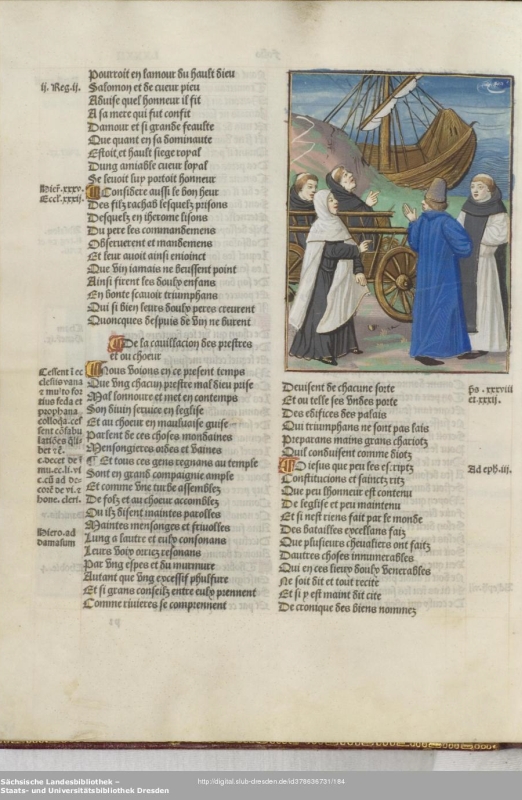 Pourroit en lamour du hault dieu
ij. Reg. ij.
Salomon et de cueur pieu
Aduise quel honneur il fit
A sa mere qui fut confit
Damour et si grande feaulte
Que quant en sa dominaute
Estoit et hault siege royal
Dung amiable cueur loyal
Se leuoit luy portoit honneur
Hier. xxxv.
Eccl. xxxij.
Considere aussi le bon heur
Des filz rachab lesquelz prisons
Desquelz en iherome lisons
Du pere les commandemens
Obseruerent et mandemens
Et leur auoit ainsi enioinct
Que vin iamais ne beussent point
Ainsi firent les doulx enfans
En bonte scauoir triumphans
Qui si bien leurs doulx peres creurent
Quoncques despuis de vin ne burent
De la cauillacion des prestres
et ou choeur
Nous voions en ce present temps
Que vng chacun prestre mal dieu prise
Mal lonnoure et met en contemps
Son diuin seruice en leglise
Et au choeur en mauluaise guise
Parlent de ces choses mondaines
Mensongieres oides et vaines
Et tous ces gens regnans au temple
Sont en grand compaignie ample
Et comme vne turbe assemblez
De folz et au choeur accomblez
Ou ilz disent maintes parolles
Maintes mensonges et friuolles
Lung a lautre et eulx consonans
Leurs voix oriez resonans
Par vng espes et du murmure
Autant que vng excessif phulsure
Et si grans conseilz entre eulx prennent
Comme riuieres se comprennent
Hiero. ad
damasum
Deuisent de chacune sorte
Et ou telle ses vndes porte
Des edifices des palais
Qui triumphans ne sont pas lais
Preparans mains grans chariotz
Quil conduisent comme diotz
ps. xxxviii
et. xxxij.
O iesus que peu les escriptz
Constitucions et sainctz ritz
Que peu lhonneur est contenu
De leglise et peu maintenu
Et si nest riens fait par le monde
Des batailles excellans faiz
Que plusieurs cheualiers ont faitz
Dautres choses innumerables
Qui en ces lieux doulx venerables
Ne soit dit et tout recite
Et si y est maint dit cite
De cronique des biens nommez
Ad eph. iij.
Sächsische Landesbibliothek –
Staats- und Universitätsbibliothek Dresden
http://digital.slub-dresden.de/id378636731/184